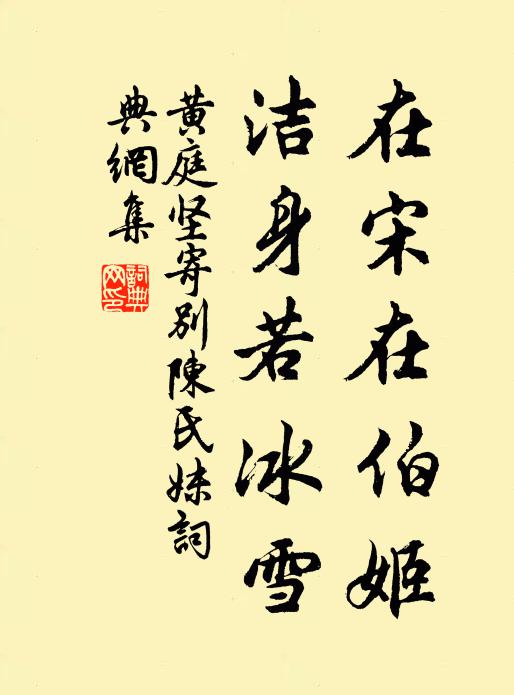 在宋在伯姬
洁身若冰雪
黄庭坚寄别陳氏妹詞
典網集
詞典
网印